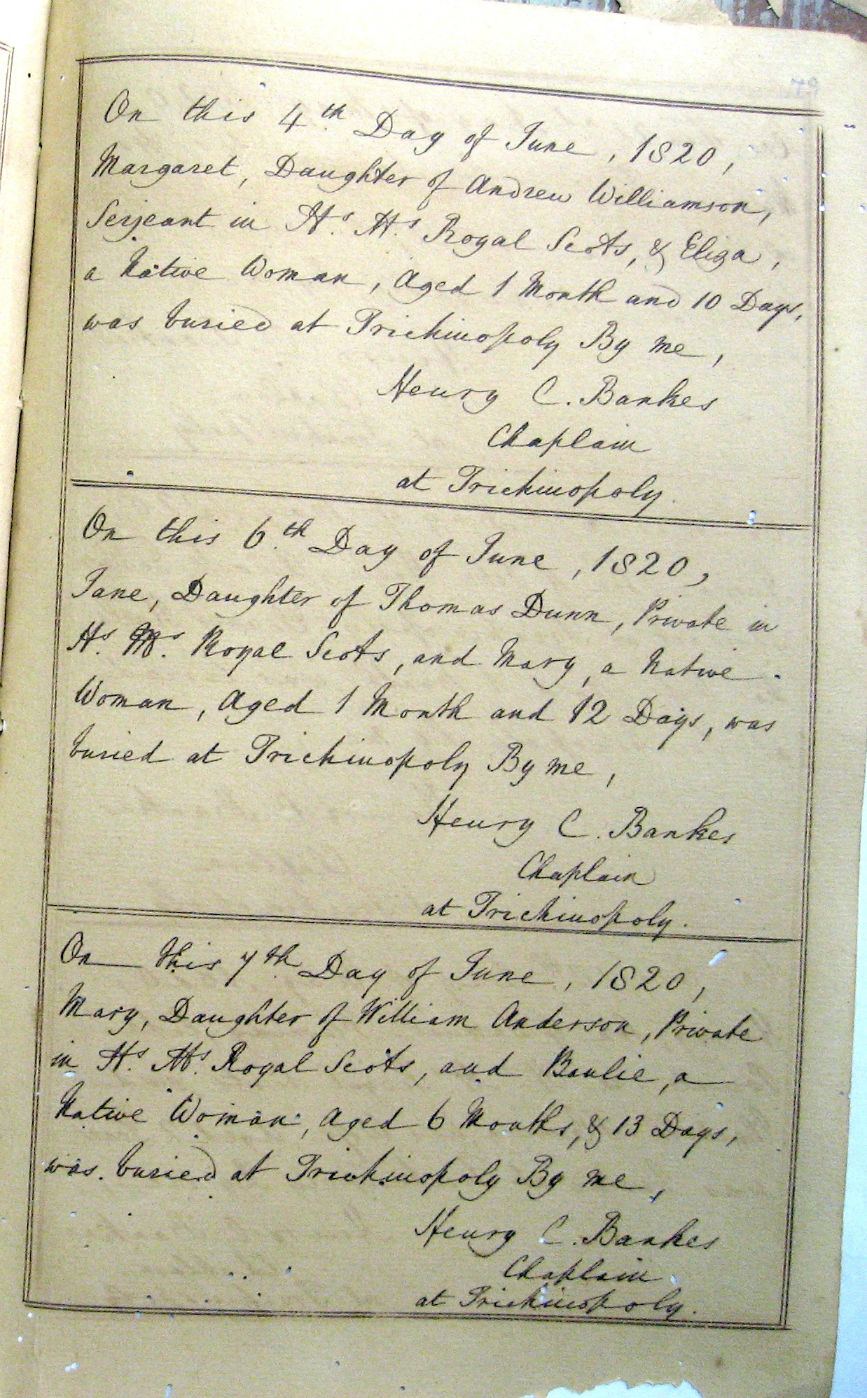 79
On this 4th Day of June, 1820,
Margaret, Daughter of Andrew Williamson,
Serjeant in H.s M.s Royal Scots, & Eliza,
a Native Woman, Aged 1 Month and 10 Days,
was buried at Trichinopoly By me,
Henry C. Bankes
Chaplain
at Trichinopoly.
On this 6th Day of June, 1820,
Jane, Daughter of Thomas Dunn, Private in
H.s M.s Royal Scots, and Mary, a Native
Woman, Aged 1 Month and 12 Days, was
buried at Trichinopoly By me,
Henry C. Bankes
Chaplain
at Trichinopoly.
On this 7th Day of June, 1820,
Mary, Daughter of William Anderson, Private
in H.s M.s Royal Scots, and Baulie, a
Native Woman, Aged 6 Months, & 13 Days,
was buried at Trichinopoly By me,
Henry C. Bankes
Chaplain
at Trichinopoly.